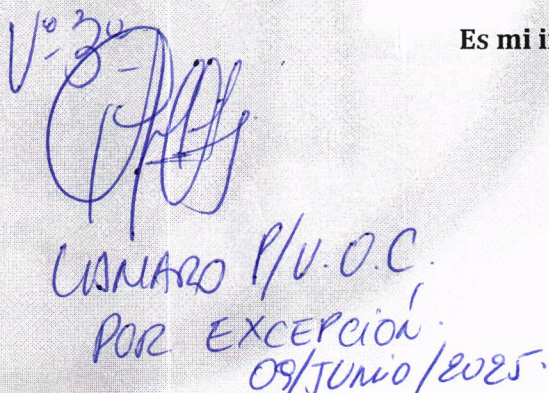 Es mi i
Vº-3º-
LLAMARO P/V.O.C.
POR EXCEPCIÓN.
09/JUNIO/2025.